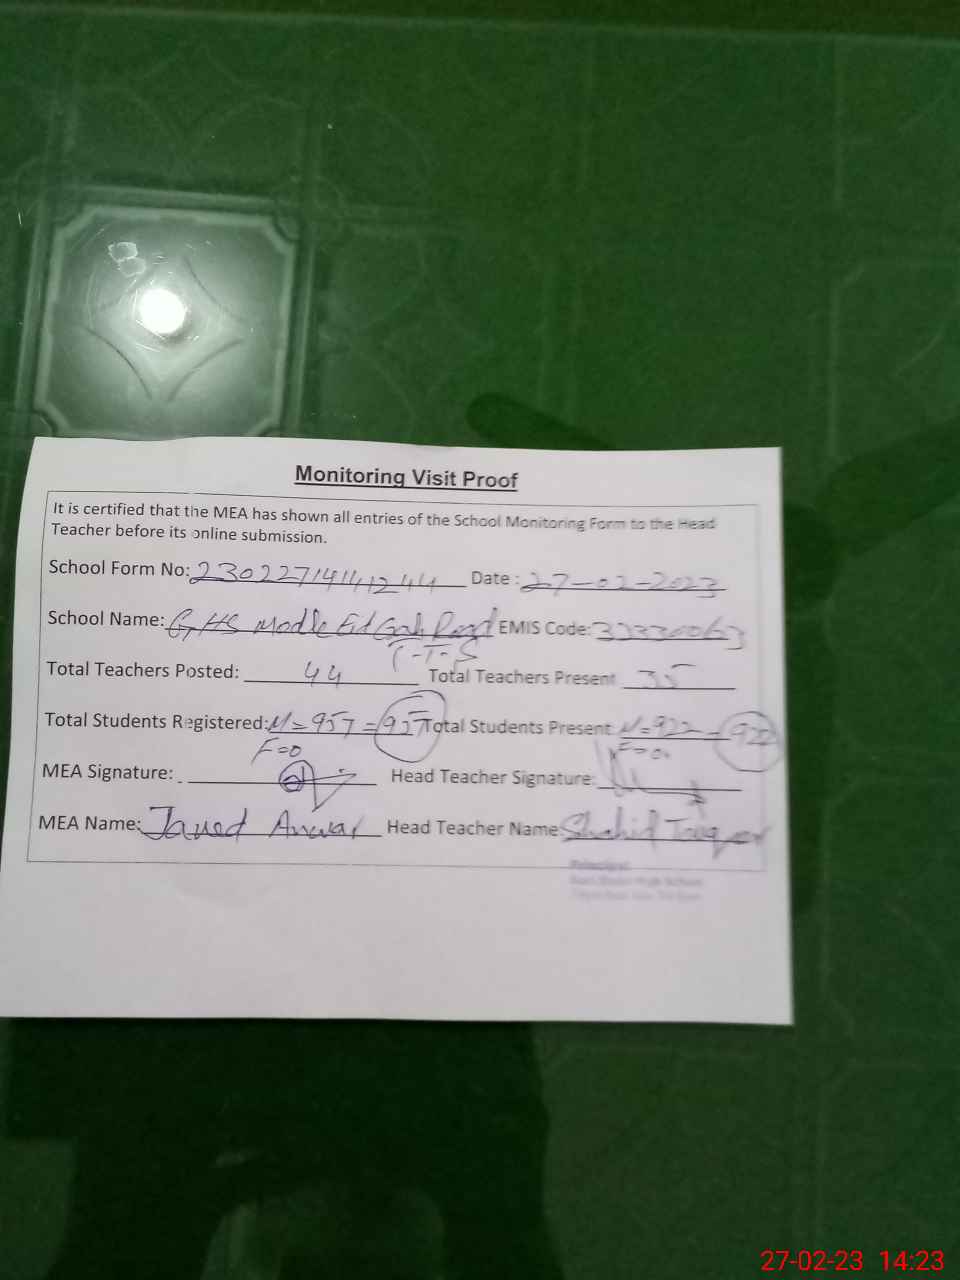 Monitoring Visit Proof
It is certified that the MEA has shown all entries of the School Monitoring Form to the Head
Teacher before its online submission.
School Form No: 23022714141244 Date : 27-02-2023
School Name: GHS Model Eid Gah Road EMIS Code:
T.T.S
Total Teachers Posted: 44 Total Teachers Present 35
Total Students Registered: M=957 = 957 Total Students Present M=922 = 922
F=0 F=0.
MEA Signature: Head Teacher Signature:
MEA Name: Javed Anwar Head Teacher Name: Shahid
Principal
27-02-23 14:23